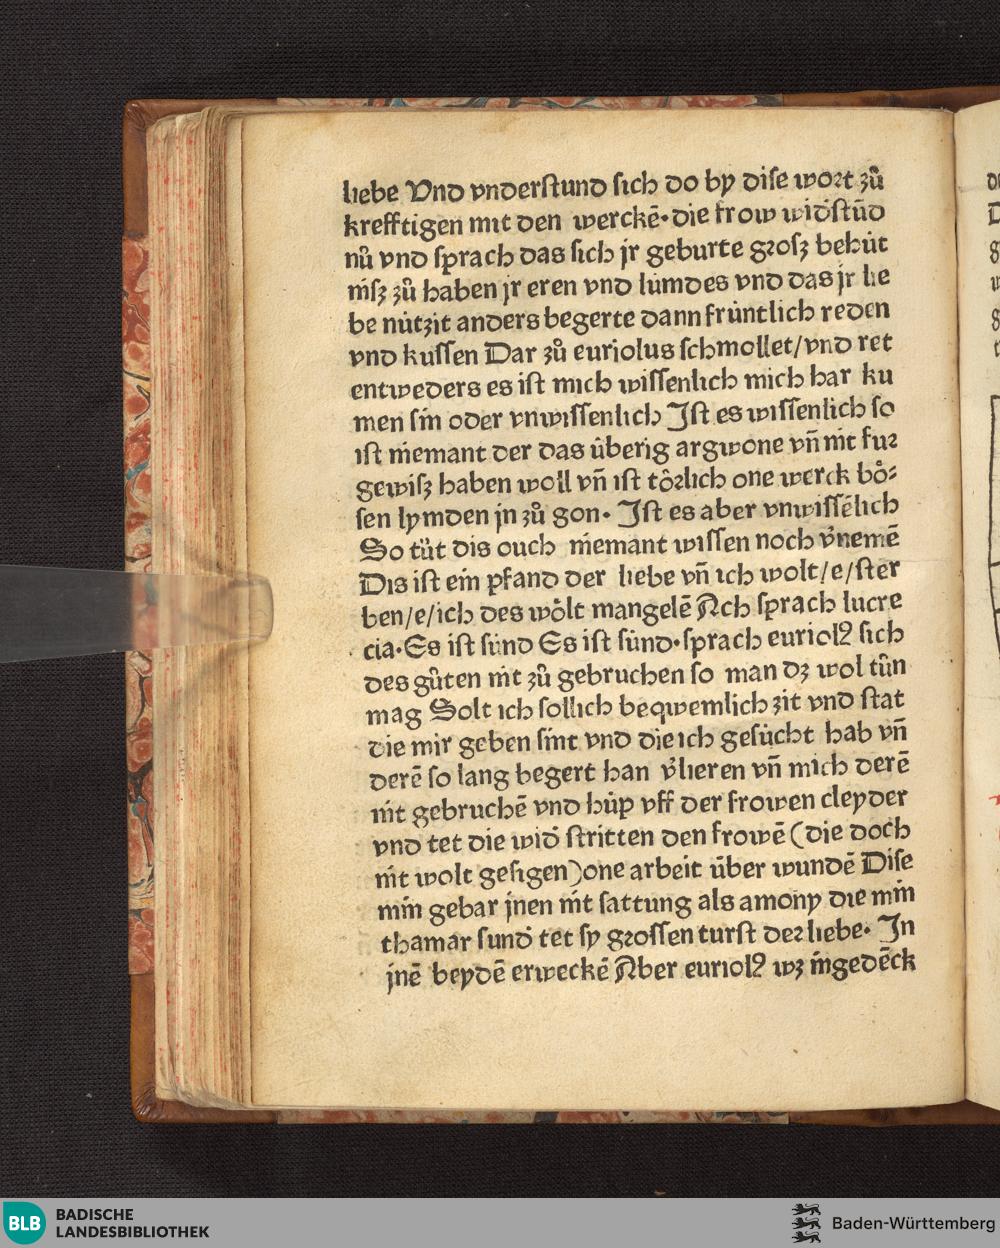 liebe Vnd vnderstund sich do by dise wort zů
krefftigen mit den werckē·die frow widstūd
nů vnd sprach das sich jr geburte grosz behůt
nisz zů haben jr eren vnd lumdes vnd das jr lie
be nützit anders begerte dann früntlich reden
vnd kussen Dar zů euriolus schmollet/vnd ret
entweders es ist mich wissenlich mich har ku
men sin oder vnwissenlich Jst es wissenlich so
ist niemant der das überig argwone vñ nit fur
gewisz haben woll vñ ist törlich one werck bö⸗
sen lymden jn zů gon· Jst es aber vnwissēlich
So tüt dis ouch niemant wissen noch v̄nemē
Dis ist ein pfand der liebe vñ ich wolt/e/ster
ben/e/ich des wölt mangelē Ach sprach lucre
cia·Es ist sünd Es ist sünd·sprach euriolꝰ sich
des gůten nit zů gebruchen so man dz wol tůn
mag Solt ich sollich beqwemlich zit vnd stat
die mir geben sint vnd die ich gesůcht hab vñ
derē so lang begert han v̄lieren vñ mich derē
nit gebruchē vnd hůp vff der frowen cleyder
vnd tet die wid stritten den frowē (die doch
nit wolt gesigen)one arbeit über wundē Dise
min gebar jnen nit sattung als amony die min
thamar sund tet sy grossen turst der liebe· Jn
jnē beydē erweckē Aber euriolꝰ wz ingedēck
BLB BADISCHE
LANDESBIBLIOTHEK
Baden-Württemberg